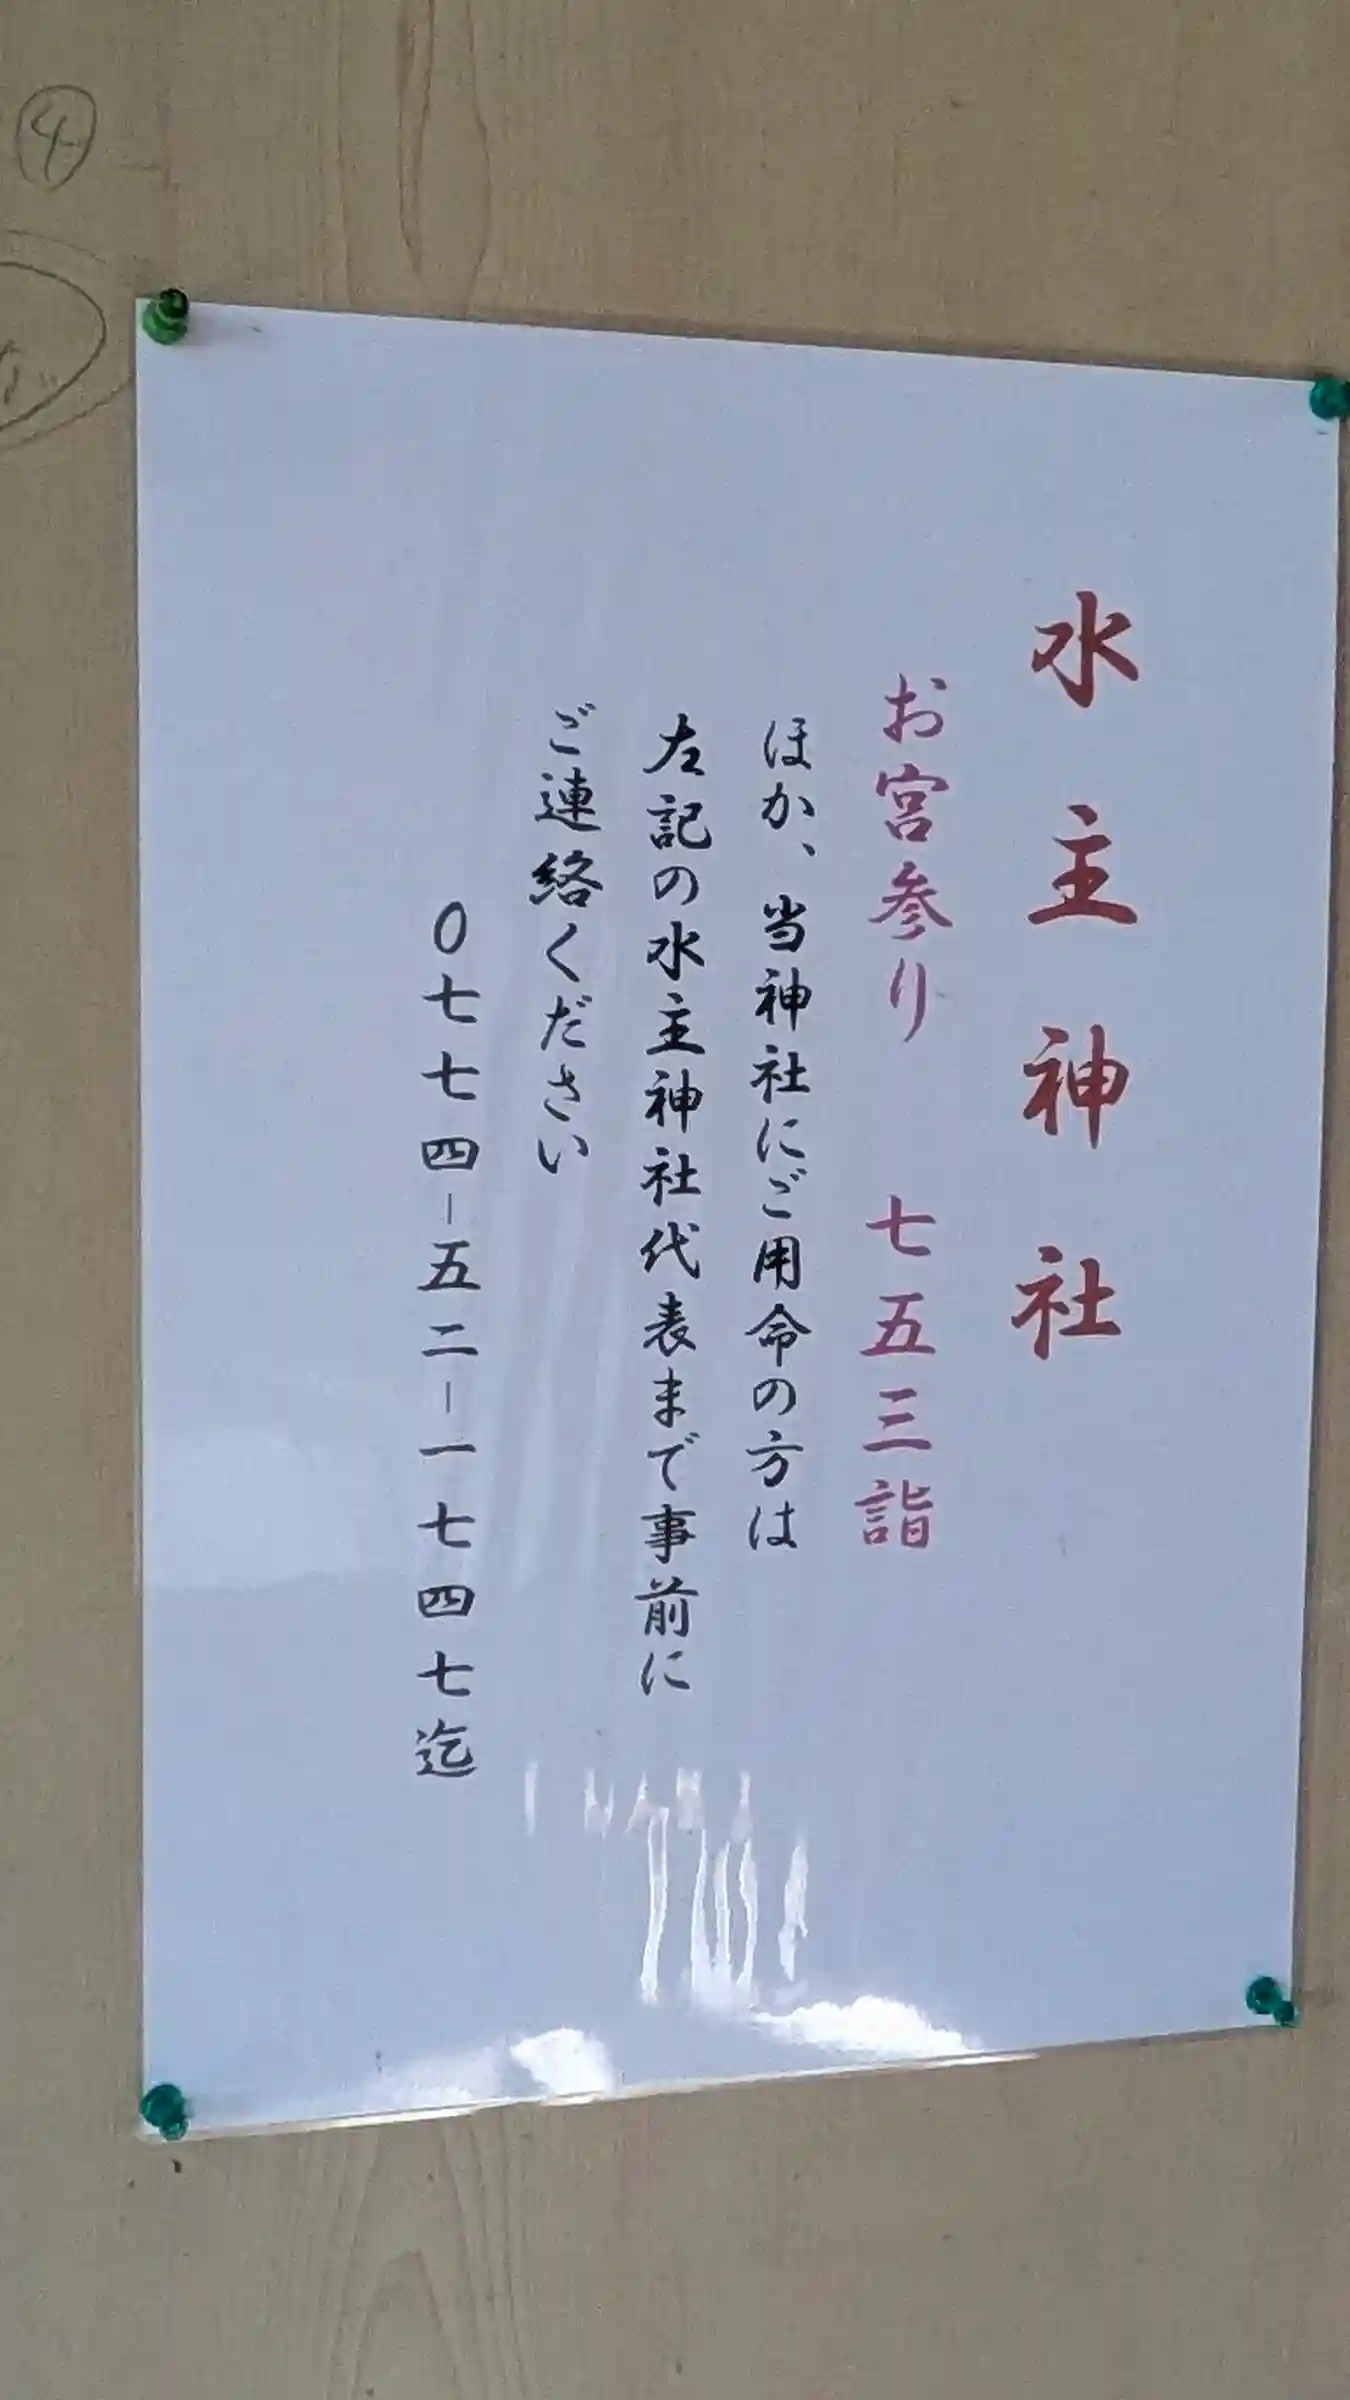 水主神社
お宮参り 七五三詣
ほか、当神社にご用命の方は
左記の水主神社代表まで事前に
ご連絡ください
0七七四-五二-一七四七迄
④